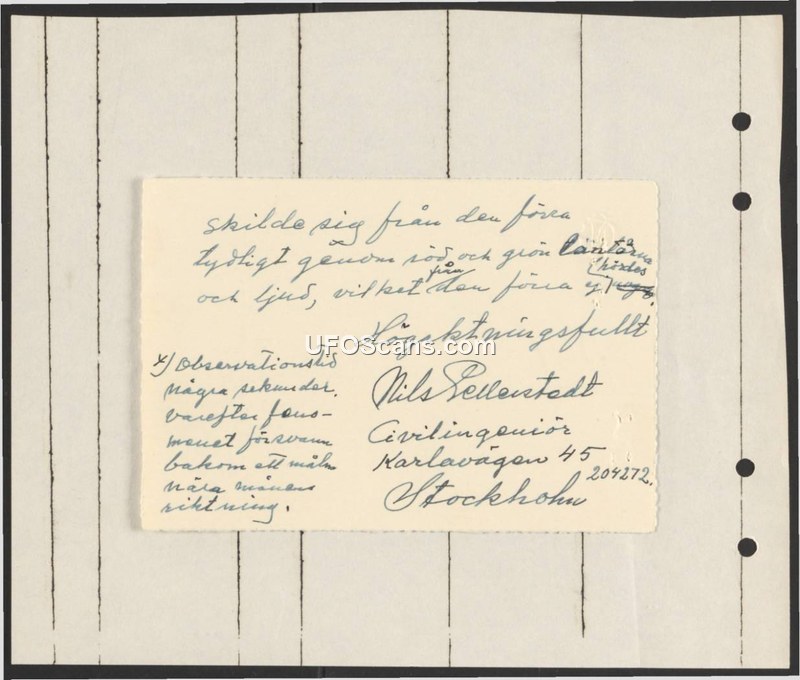 skilde sig från den förra
tydligt genom röd och grön lanterna
och ljud, vilket från den förra ej hördes.
Högaktningsfullt
Nils
Civilingeniör
Karlavägen 45
204272.
Stockholm
x) Observationstid
några sekunder,
varefter feno-
menet försvann
bakom ett moln
nära månens
riktning.
UFOScans.com